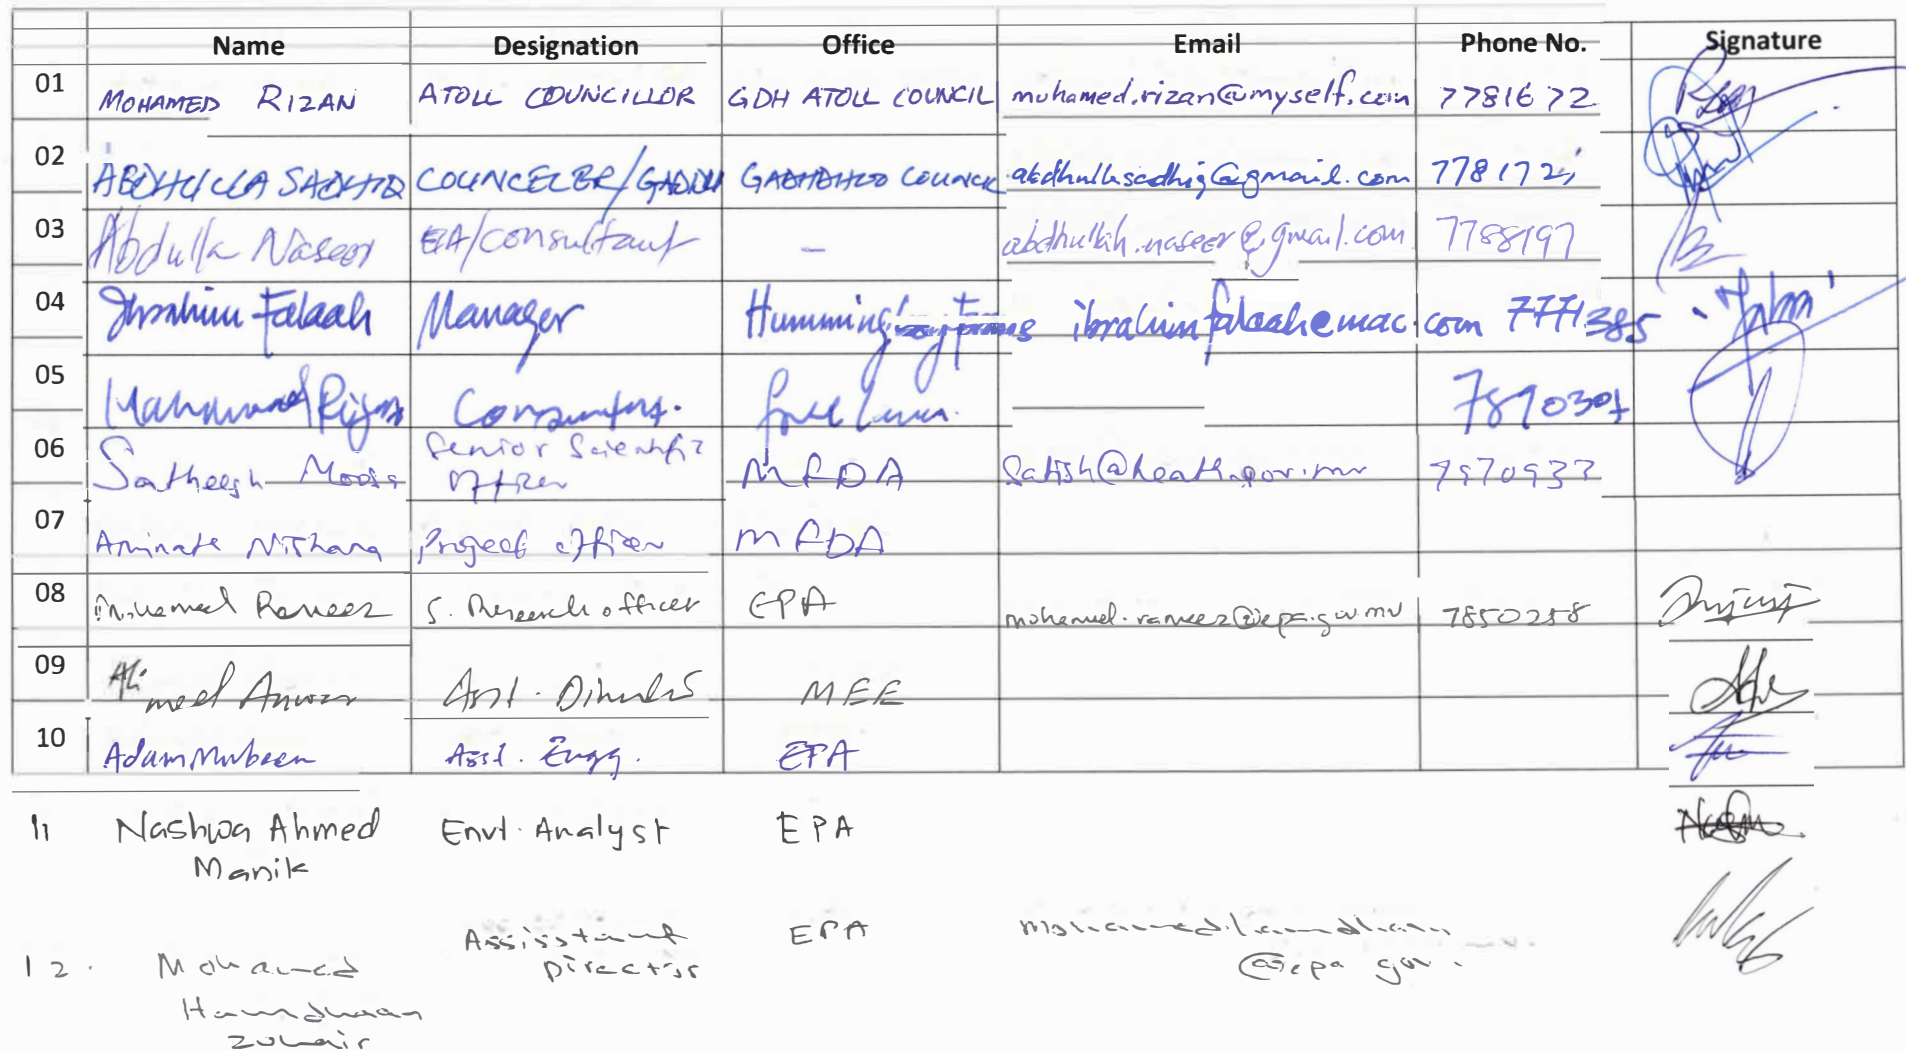 Name Designation Office Email Phone No. Signature
01 MOHAMED RIZAN ATOLL COUNCILLOR GDH ATOLL COUNCIL mohamed.rizan@myself.com 7781672
02 ABDHULLA SADHIQ COUNCELER/GADHDH GADHDHOO COUNCIL abdhullasadhig@gmail.com 778172
03 Abdulla Naseer EIA/Consultant – abdhullah.naseer@gmail.com 7788197
04 Ibrahim Falaah Manager Humming ibrahimfalaah@mac.com 7771385
05 Mahamad Rizan 7890307
06 Satheesh Moosa Senior Scientific
Officer MFDA Satish@health.gov.mv
07 Aminath Nishana Project officer MFDA
08 Mohamed Rameez S. Research officer EPA mohamed.rameez@epa.gov.mv 7850258
09 Ahmed Anwar Asst. MEE
10 Adam Mubeen Asst. Engg. EPA
11 Nashwa Ahmed Envt. Analyst EPA
Manik
Assisstant EPA mohamed.hamdhaan
12. Mohamed Director @epa gov.
Hamdhaan
Zuhair